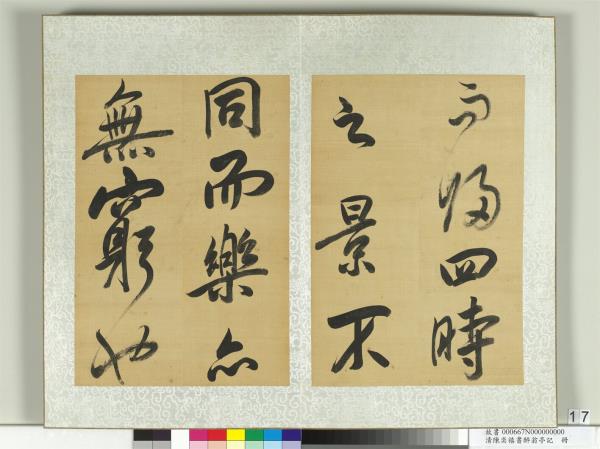 而歸四時
之景不
同而樂亦
無窮也
17
故書000667N000000000
清陳奕禧書醉翁亭記 冊